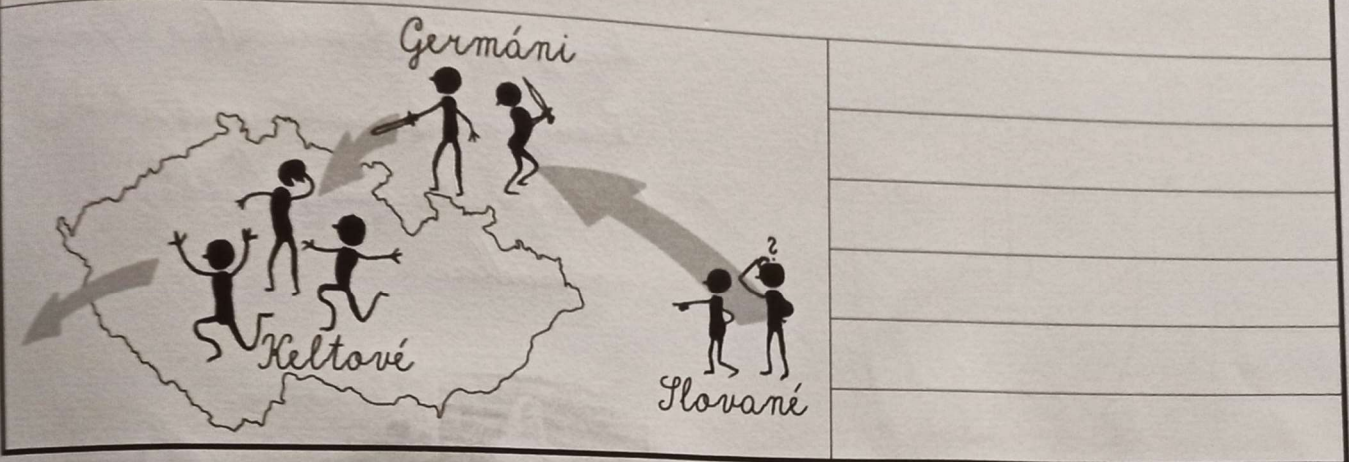 Germáni
?
Keltové
Slované